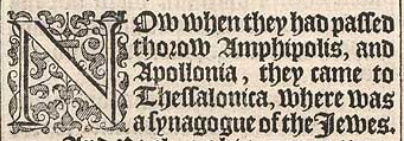 NOw when they had passed
thorow Amphipolis, and
Apollonia, they came to
Thessalonica, where was
a synagogue of the Jewes.